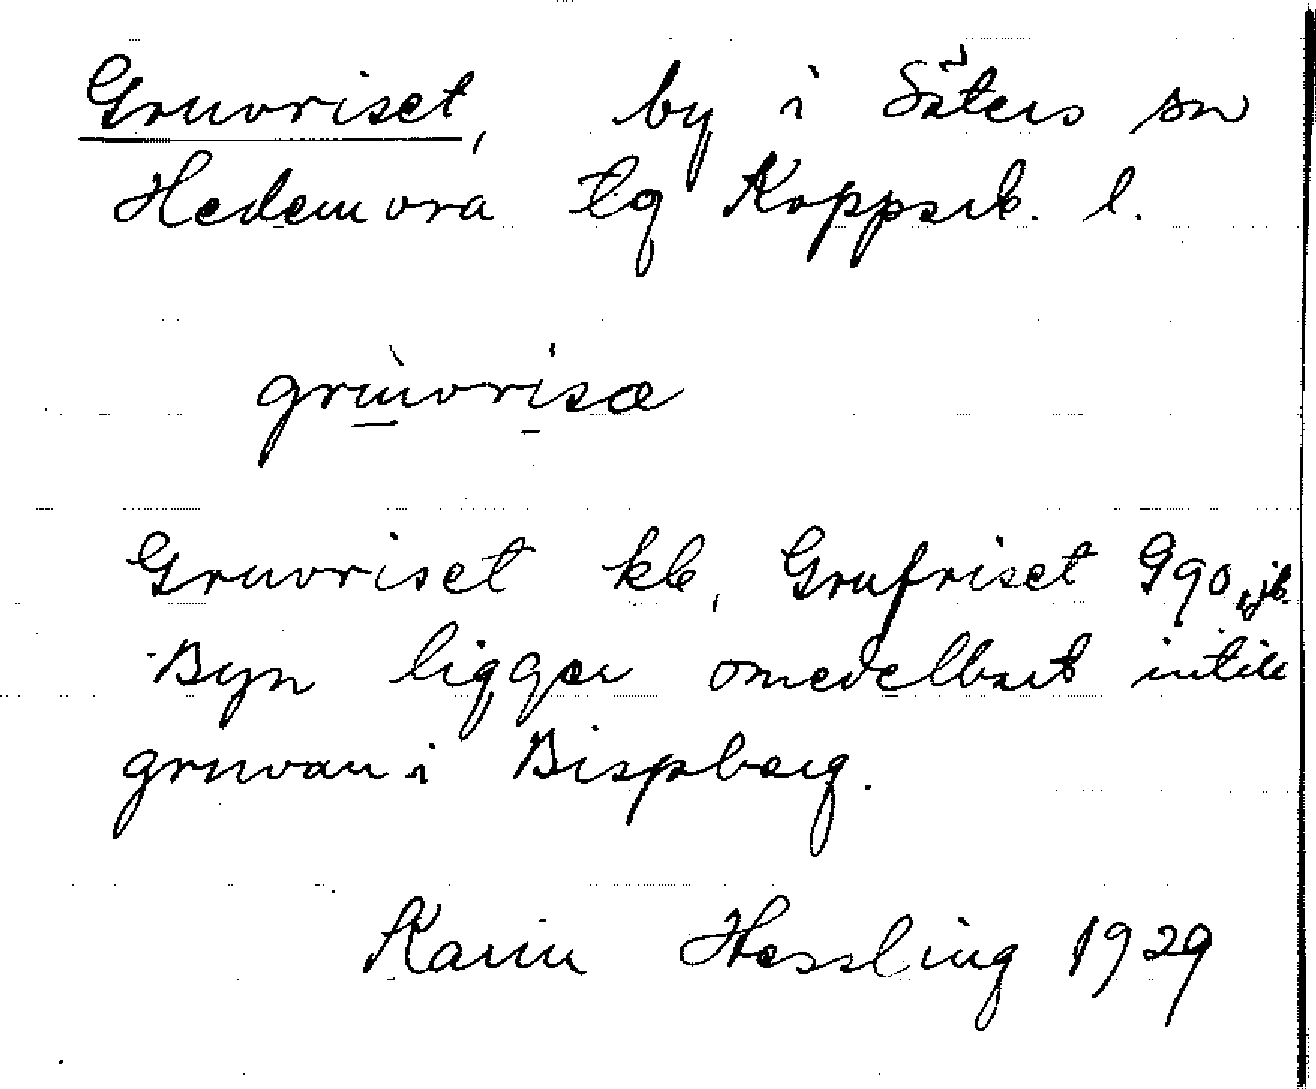 Gruvriset, by i Säters sn
Hedemora tg Kopparb. l.
grùvrisæ
Gruvriset kb, Grufriset G90, jb.
Byn ligger omedelbart intill
gruvan i Bispberg.
Karin Hessling 1929